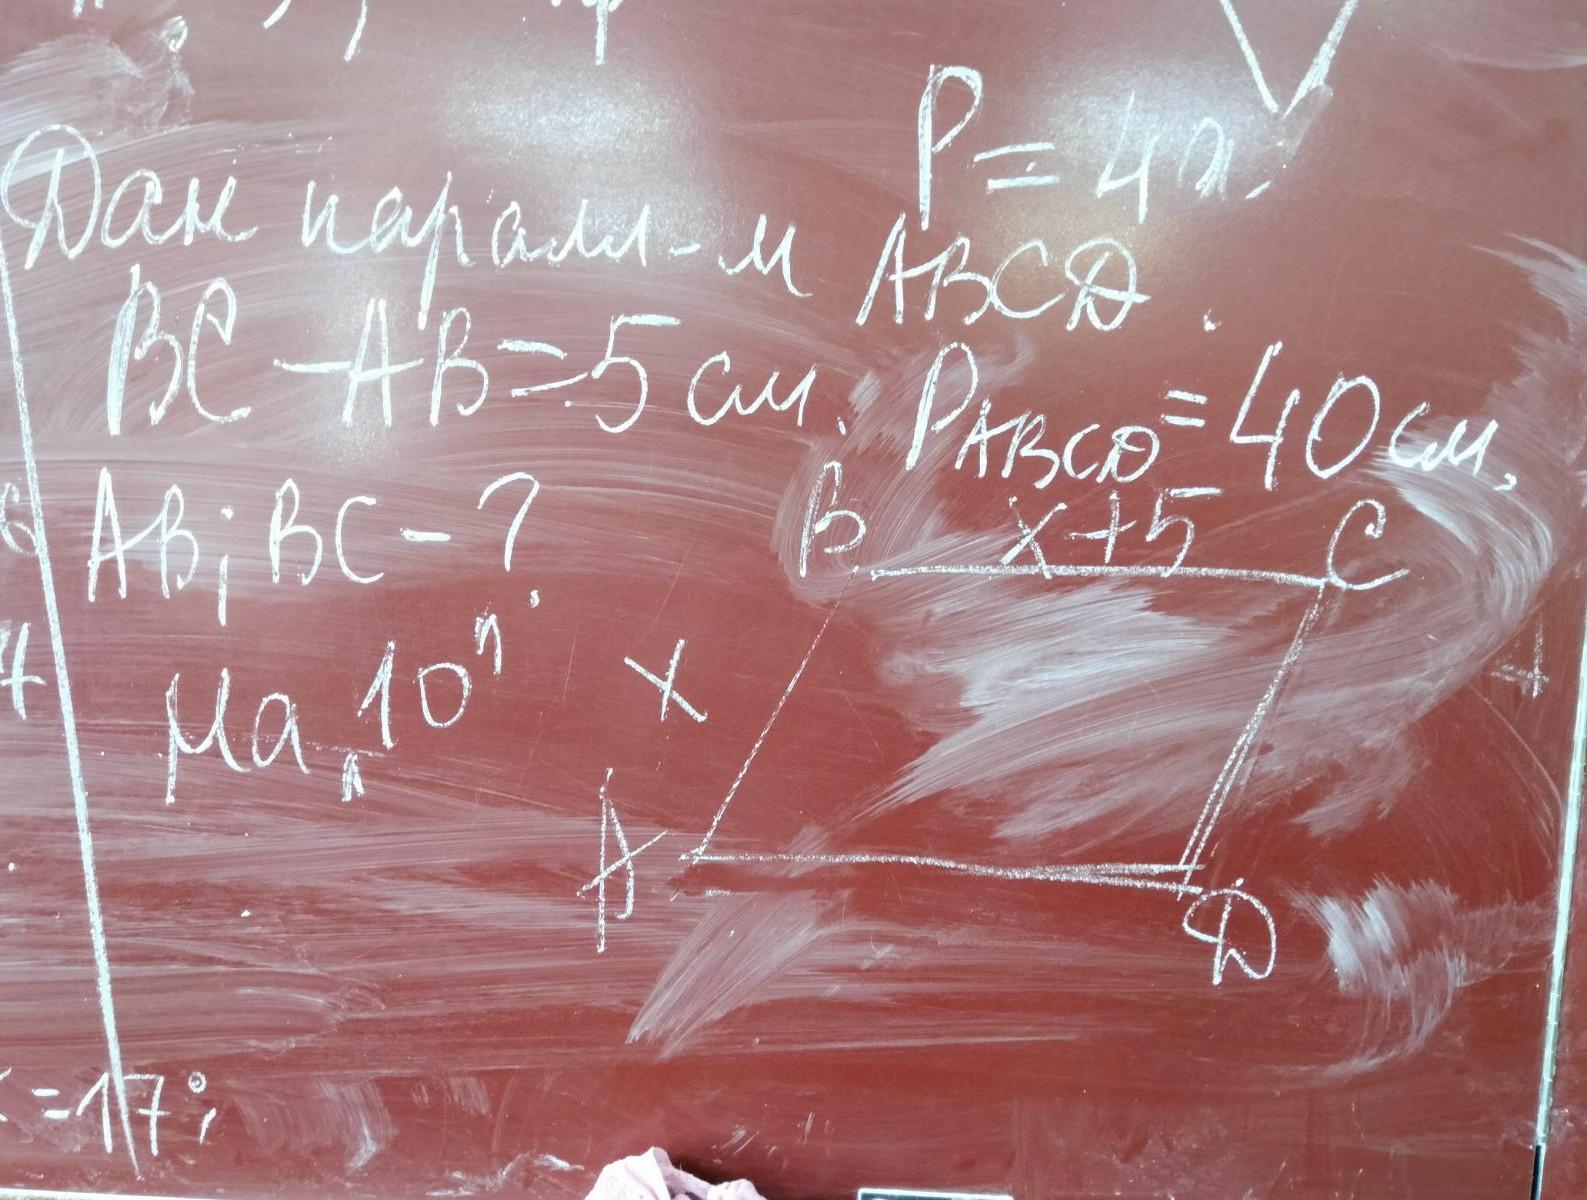 P = 4a.
Дан паралл-м ABCD.
BC - AB = 5 см. PABCD = 40 см,
AB; BC - ?
На "10"
B x+5 C
x
A D
= 17°;